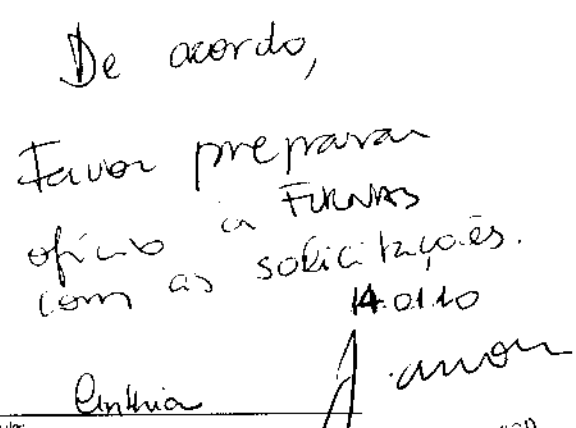 De acordo,
Favor preparar
ofício à FURNAS
com as solicitações.
14.01.10
Cinthia